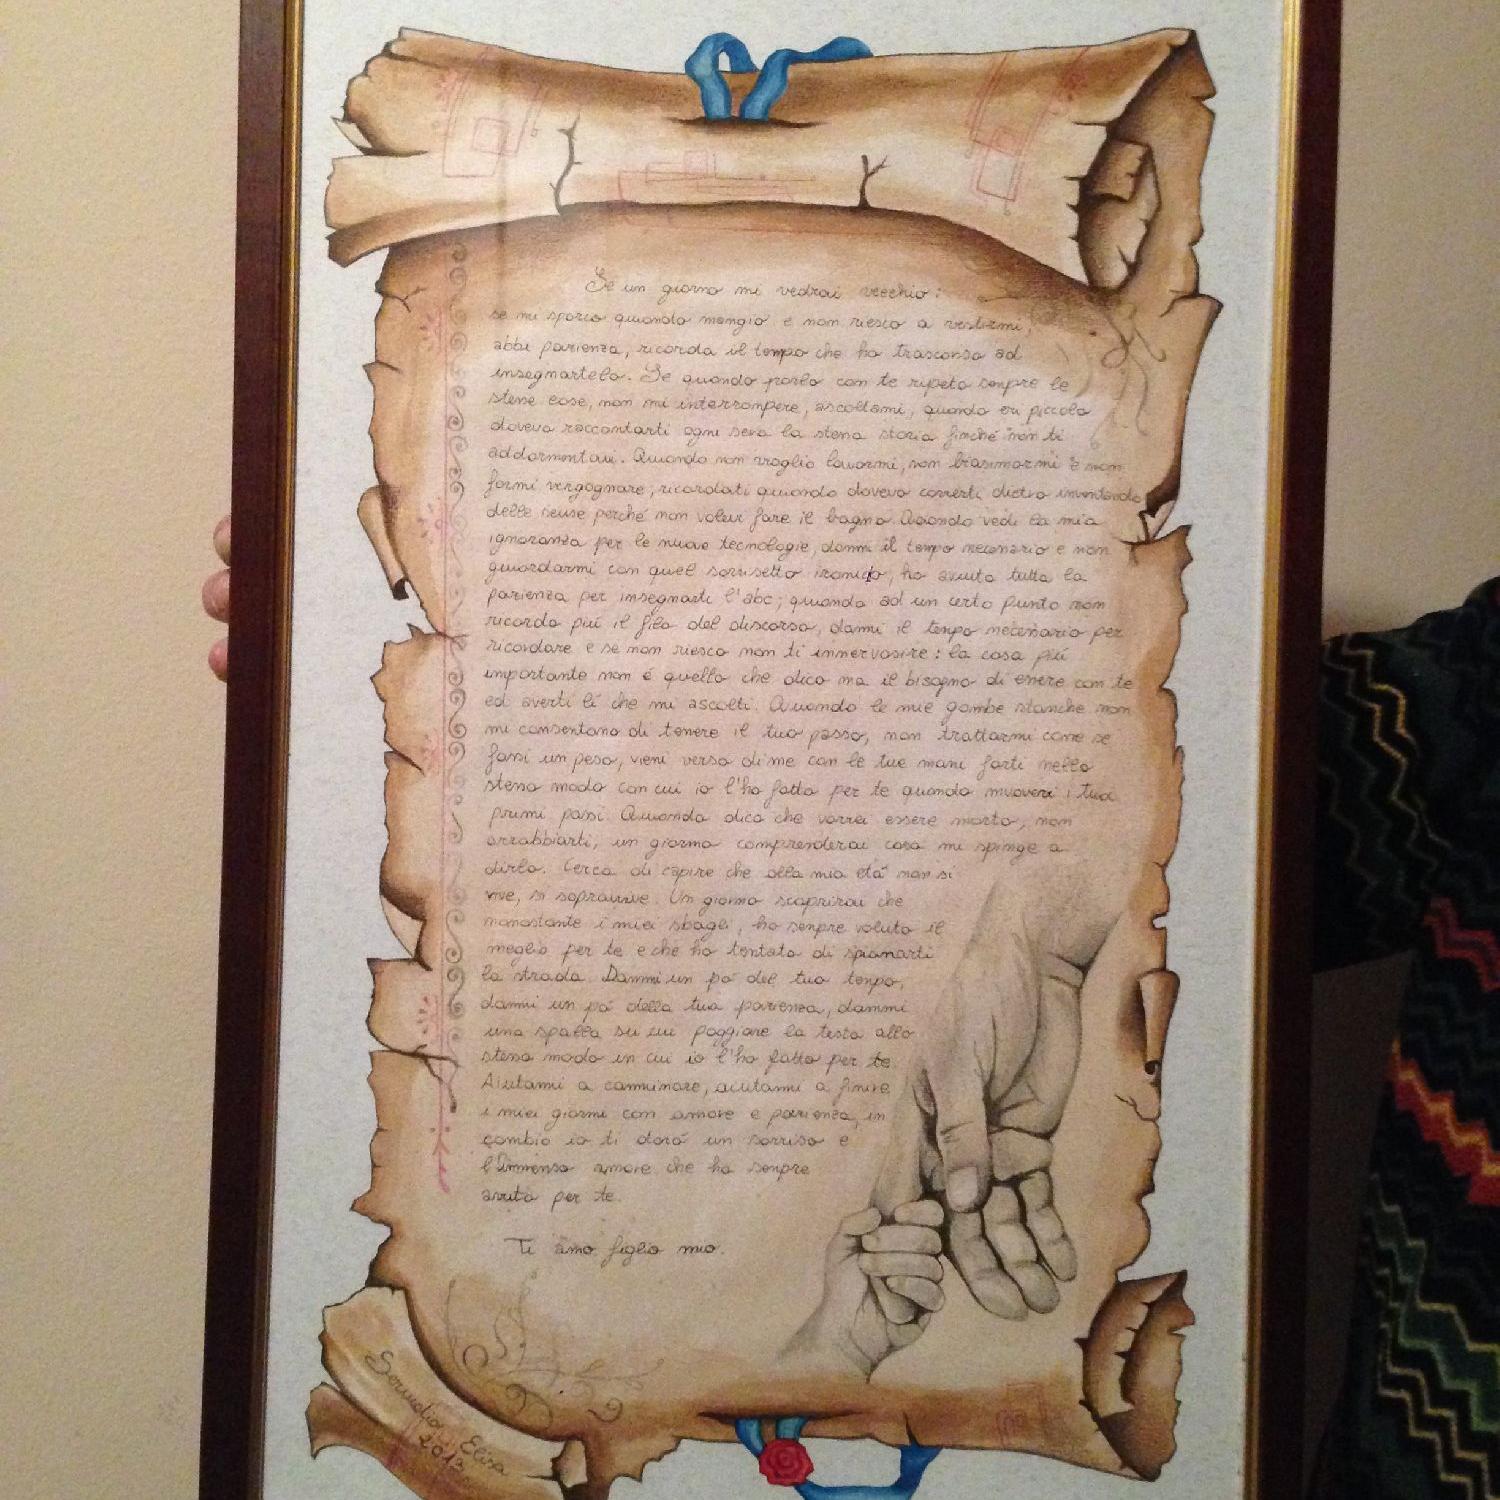 Se un giorno mi vedrai vecchio:
se mi sporco quando mangio e non riesco a vestirmi,
abbi pazienza, ricorda il tempo che ho trascorso ad
insegnartelo. Se quando parlo con te ripeto sempre le
stesse cose, non mi interrompere, ascoltami, quando eri piccolo
dovevo raccontarti ogni sera la stessa storia finché non ti
addormentavi. Quando non voglio lavarmi, non biasimarmi e non
farmi vergognare; ricordati quando dovevo correrti dietro inventando
delle scuse perché non volevi fare il bagno. Quando vedi la mia
ignoranza per le nuove tecnologie, dammi il tempo necessario e non
guardarmi con quel sorrisetto ironico, ho avuto tutta la
pazienza per insegnarti l'abc; quando ad un certo punto non
ricordo piú il filo del discorso, dammi il tempo necessario per
ricordare e se non riesco non ti innervosire: la cosa piú
importante non é quello che dico ma il bisogno di essere con te
ed averti lí che mi ascolti. Quando le mie gambe stanche non
mi consentono di tenere il tuo passo, non trattarmi come se
fossi un peso, vieni verso di me con le tue mani forti nello
stesso modo con cui io l'ho fatto per te quando muovevi i tuoi
primi passi. Quando dico che vorrei essere morto, non
arrabbiarti, un giorno comprenderai cosa mi spinge a
dirlo. Cerca di capire che alla mia etá non si
vive, si sopravvive. Un giorno scoprirai che
nonostante i miei sbagli, ho sempre voluto il
meglio per te e che ho tentato di spianarti
la strada. Dammi un pó del tuo tempo,
dammi un pó della tua pazienza, dammi
una spalla su cui poggiare la testa allo
stesso modo in cui io l'ho fatto per te.
Aiutami a camminare, aiutami a finire
i miei giorni con amore e pazienza, in
cambio io ti daró un sorriso e
l'immenso amore che ho sempre
avuto per te.
Ti amo figlio mio.
Elisa
2013